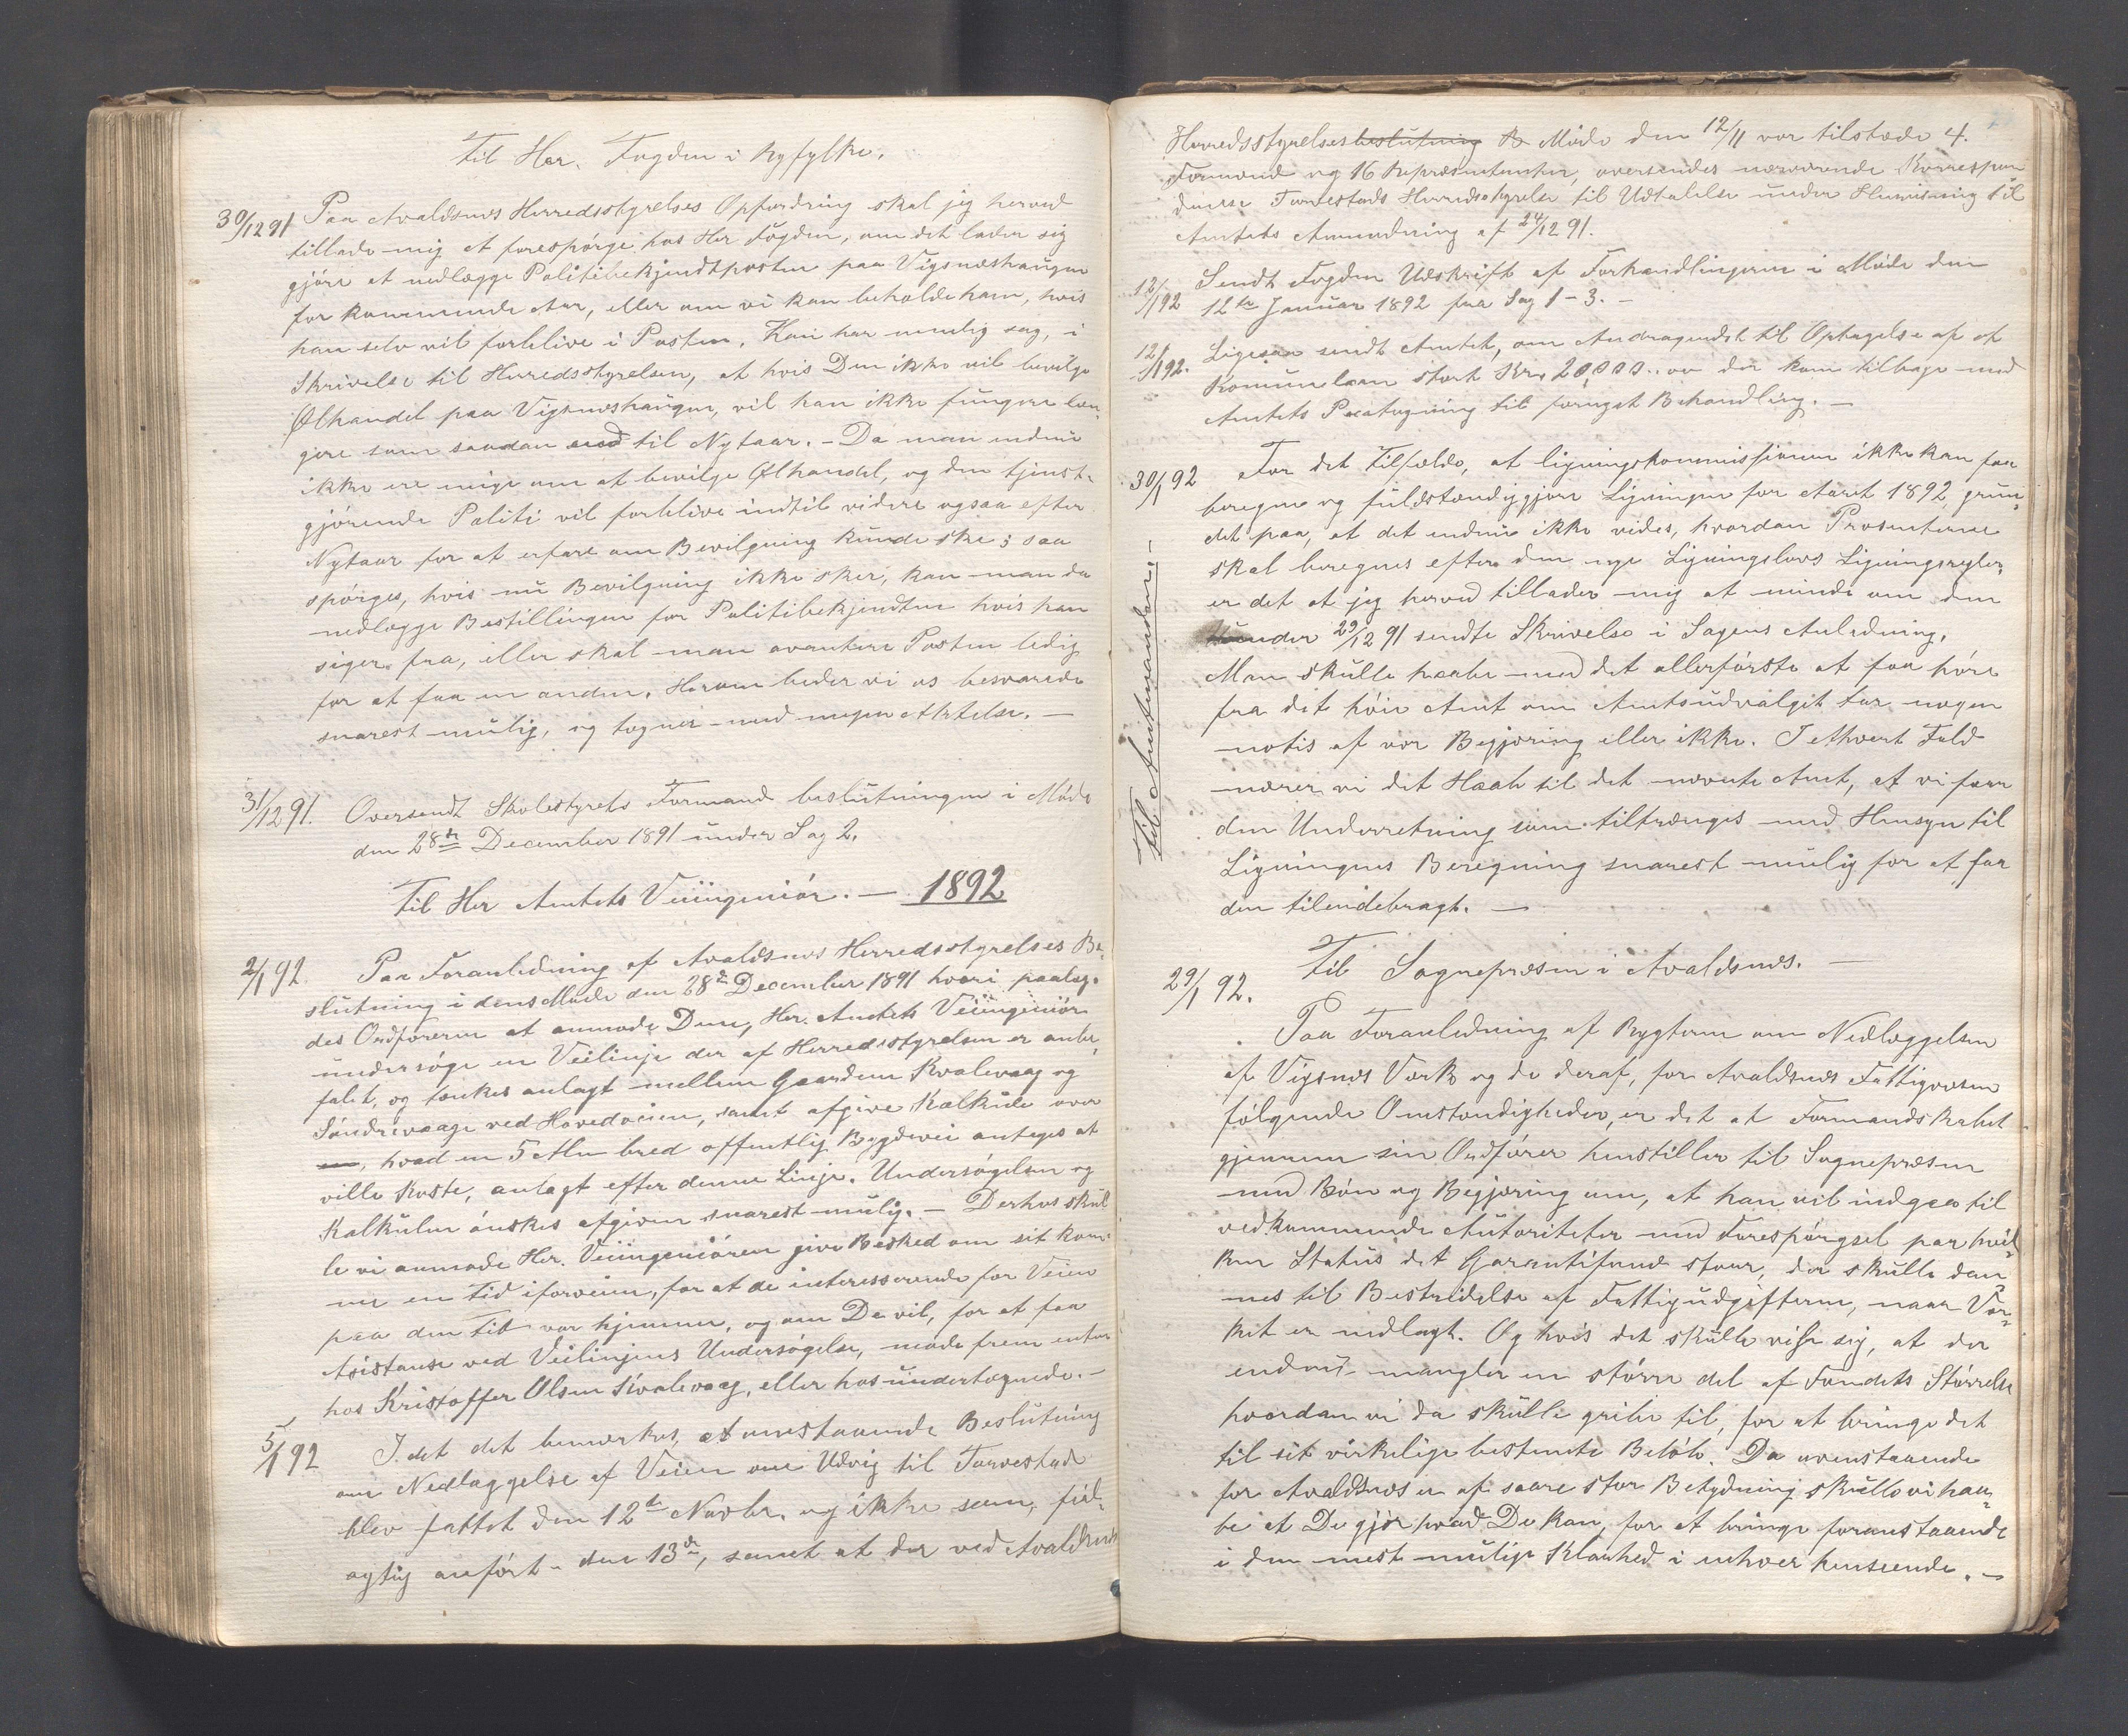 Til Hr. Fogden i Ryfylke.
30/12 91 Paa Avaldsnes Herredsstyrelses Opfordring skal jeg herved
tillade mig at forespørge hos Hr Fogden, om det lader sig
gjøre at nedlægge Politibetjendtposten paa Vigsneshaugen
for kommende Aar, eller om vi kan beholde ham, hvis
han selv vil forblive i Posten. Han har nemlig sagt, i
Skrivelse til Herredsstyrelsen, at hvis Den ikke vil bevilge
Ølhandel paa Vigsneshaugen, vil han ikke fungere læn-
gere som saadan end til Nytaar. – Da man endnu
ikke ere enige om at bevilge Ølhandel, og den tjenst-
gjørende Politi vil forblive indtil videre ogsaa efter
Nytaar for at erfare om Bevilgning kunde ske; saa
spørges, hvis nu Bevilgning ikke sker, kan man da
nedlægge Bestillingen for Politibetjendten hvis han
siger fra, eller skal man avertere Posten ledig
for at faa en anden. Herom beder vi os besvarede
snarest mulig, og tegner med megen Agtelse. —
31/12 91. Oversendt Skolestyrets Formand beslutningen i Møde
den 28de December 1891 under Sag 2.
Til Hr Amtets Veiingeniør. — 1892
2/1 92. Paa Foranledning af Avaldsnes Herredsstyrelses Be-
slutning i dens Møde den 28de December 1891 hvori paalag-
des Ordføreren at anmode Dem, Hr. Amtets Veiingeniør
undersøge en Veilinje der af Herredsstyrelsen er anbe-
falet, og tænkes anlagt mellem Gaardene Kvalevaag og
Søndrevaage ved Hovedveien, samt afgive Kalkule over
, hvad en 5 Alen bred offentlig Bygdevei antages at
ville koste, anlagt efter denne Linje. Undersøgelsen og
Kalkulen ønskes afgiven snarest mulig. – Derhos skul
le vi anmode Hr. Veiingeniøren give Besked om sit kom-
me en Tid iforveien, for at de interesserende for Veien
paa den Tid var hjemme, og om De vil, for at faa
Asistanse ved Veilinjens Undersøgelse, møde frem enten
hos Kristoffer Olsen Kvalevaag, eller hos undertegnede. –
5/1 92 I det det bemærkes, at omstaaende Beslutning
om Nedlæggelse af Veien over Udvig til Torvestad
blev fattet den 12te Novbr. og ikke som, feil-
agtig anført – den 13de, samt at der ved Avaldsnes
Herredsstyrelses beslutning Møde den 12/11 var tilstede 4.
Formænd og 16 Repræsentanter, oversendes nærværende Korrespon
dense Torvestads Herredsstyrelse til Udtalelse under Henvisning til
Amtets Anmodning af 24/12 91.
12/1 92 Sendt Fogden Udskrift af Forhandlingerne i Møde den
12te Januar 1892 paa Sag 1–3. –
12/1 92. Ligesaa sendt Amtet, om Andragendet til Optagelse af et
Komunelaan stort Kr. 20,000.. der kom tilbage med
Amtets Paategning til fornyet Behandling. —
Til Amtmanden. –
30/1 92 For det Tilfælde, at ligningskommissionen ikke kan faa
beregne og fuldstændiggjøre Ligningen for Aaret 1892, grun-
det paa, at det endnu ikke vides, hvordan Prosenterne
skal beregnes efter den nye Ligningslovs Ligningsregler,
er det at jeg herved tillader mig at minde om den
under 29/12 91 sendte Skrivelse i Sagens Anledning.
Man skulle haabe med det allerførste at faa høre
fra det høie Amt om Amtsudvalget tar nogen
notis af vor Begjæring eller ikke. I ethvert Fald
nærer vi det Haab til det nævnte Amt, at vi faar
den Underretning som tiltrænges med Hensyn til
Ligningens Beregning snarest mulig for at faa
den tilendebragt. —
Til Sognepresten i Avaldsnes. —
29/1 92. Paa Foranledning af Rygterne om Nedlæggelsen
af Vigsnes Værk og de deraf, for Avaldsnes Fattigvæsen
følgende Omstændigheder, er det at Formandskabet
gjennem sin Ordfører henstiller til Sognepresten
med Bøn og Begjæring om, at han vil indgaa til
vedkommende Autoriteter med Forespørgsel paa hvil-
ken Status det Garantifond staar, der skulle dan-
nes til Bestridelse af Fattigudgifterne, naar Vær-
ket er nedlagt. Og hvis det skulle vise sig, at der
endnu mangler en større del af Fondets Størrelse
hvordan vi da skulle gribe til, for at bringe det
til sit virkelige bestemte Beløb. Da ovenstaaende
for Avaldsnes er af saare stor Betydning skulle vi haa-
be at De gjør hvad De kan, for at bringe foranstaaende
i den mest mulige Klarhed i enhver henseende. —